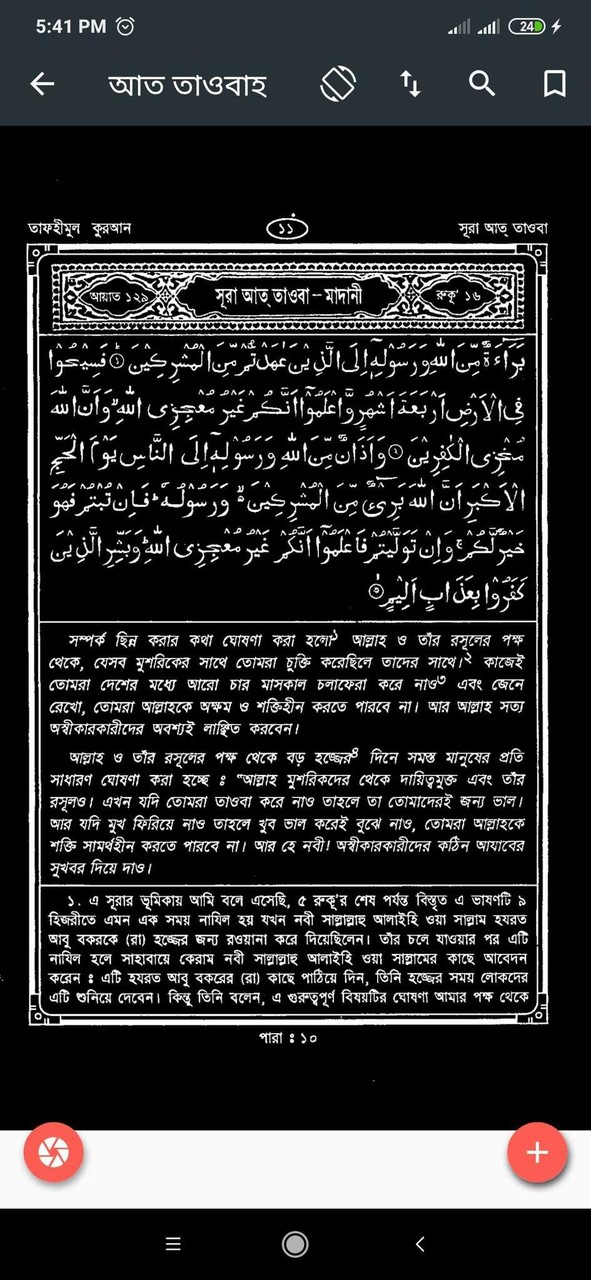 5:41 PM
24
আত তাওবাহ
তাফহীমুল কুরআন
১১
সূরা আত্ তাওবা
আয়াত ১২৯
সূরা আত্ তাওবা – মাদানী
রুকূ' ১৬
بَرَآءَةٌ مِّنَ اللّٰهِ وَرَسُوْلِهٖٓ اِلَى الَّذِيْنَ عٰهَدْتُّمْ مِّنَ الْمُشْرِكِيْنَ ۞ فَسِيْحُوْا
فِى الْاَرْضِ اَرْبَعَةَ اَشْهُرٍ وَّاعْلَمُوْٓا اَنَّكُمْ غَيْرُ مُعْجِزِى اللّٰهِ ۙ وَاَنَّ اللّٰهَ
مُخْزِى الْكٰفِرِيْنَ ۞ وَاَذَانٌ مِّنَ اللّٰهِ وَرَسُوْلِهٖٓ اِلَى النَّاسِ يَوْمَ الْحَجِّ
الْاَكْبَرِ اَنَّ اللّٰهَ بَرِىْٓءٌ مِّنَ الْمُشْرِكِيْنَ ۙ وَرَسُوْلُهٗ ؕ فَاِنْ تُبْتُمْ فَهُوَ
خَيْرٌ لَّكُمْ ۚ وَاِنْ تَوَلَّيْتُمْ فَاعْلَمُوْٓا اَنَّكُمْ غَيْرُ مُعْجِزِى اللّٰهِ ؕ وَبَشِّرِ الَّذِيْنَ
كَفَرُوْا بِعَذَابٍ اَلِيْمٍ ۞
সম্পর্ক ছিন্ন করার কথা ঘোষণা করা হলো১ আল্লাহ ও তাঁর রসূলের পক্ষ
থেকে, যেসব মুশরিকের সাথে তোমরা চুক্তি করেছিলে তাদের সাথে।২ কাজেই
তোমরা দেশের মধ্যে আরো চার মাসকাল চলাফেরা করে নাও৩ এবং জেনে
রেখো, তোমরা আল্লাহকে অক্ষম ও শক্তিহীন করতে পারবে না। আর আল্লাহ সত্য
অস্বীকারকারীদের অবশ্যই লাঞ্ছিত করবেন।
আল্লাহ ও তাঁর রসূলের পক্ষ থেকে বড় হজ্জের৪ দিনে সমস্ত মানুষের প্রতি
সাধারণ ঘোষণা করা হচ্ছে ঃ “আল্লাহ মুশরিকদের থেকে দায়িত্বমুক্ত এবং তাঁর
রসূলও। এখন যদি তোমরা তাওবা করে নাও তাহলে তা তোমাদেরই জন্য ভাল।
আর যদি মুখ ফিরিয়ে নাও তাহলে খুব ভাল করেই বুঝে নাও, তোমরা আল্লাহকে
শক্তি সামর্থহীন করতে পারবে না। আর হে নবী! অস্বীকারকারীদের কঠিন আযাবের
সুখবর দিয়ে দাও।
১. এ সূরার ভূমিকায় আমি বলে এসেছি, ৫ রুকূ'র শেষ পর্যন্ত বিস্তৃত এ ভাষণটি ৯
হিজরীতে এমন এক সময় নাযিল হয় যখন নবী সাল্লাল্লাহু আলাইহি ওয়া সাল্লাম হযরত
আবু বকরকে (রা) হজ্জের জন্য রওয়ানা করে দিয়েছিলেন। তাঁর চলে যাওয়ার পর এটি
নাযিল হলে সাহাবায়ে কেরাম নবী সাল্লাল্লাহু আলাইহি ওয়া সাল্লামের কাছে আবেদন
করেন ঃ এটি হযরত আবু বকরের (রা) কাছে পাঠিয়ে দিন, তিনি হজ্জের সময় লোকদের
এটি শুনিয়ে দেবেন। কিন্তু তিনি বলেন, এ গুরুত্বপূর্ণ বিষয়টির ঘোষণা আমার পক্ষ থেকে
পারা ঃ ১০